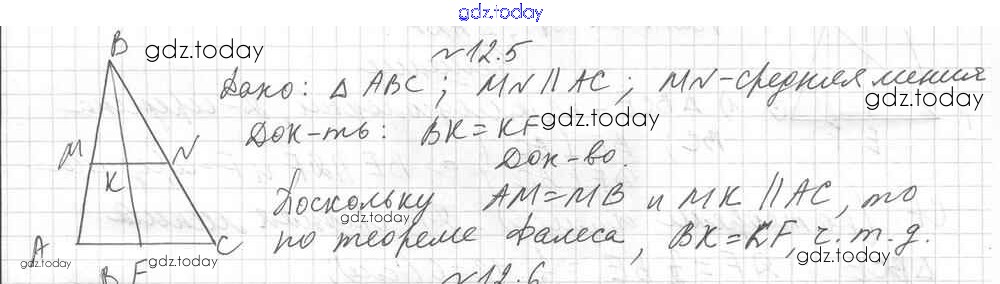 gdz.today
№12.5
B gdz.today
Дано: △ABC; MN∥AC; MN-средняя линия
gdz.today
Док-ть: BK=KF gdz.today
Док-во.
M N
K
Поскольку AM=MB и MK∥AC, то
gdz.today
по теореме Фалеса, BK=KF, ч.т.д.
A F C
gdz.today gdz.today gdz.today
B
№12.6